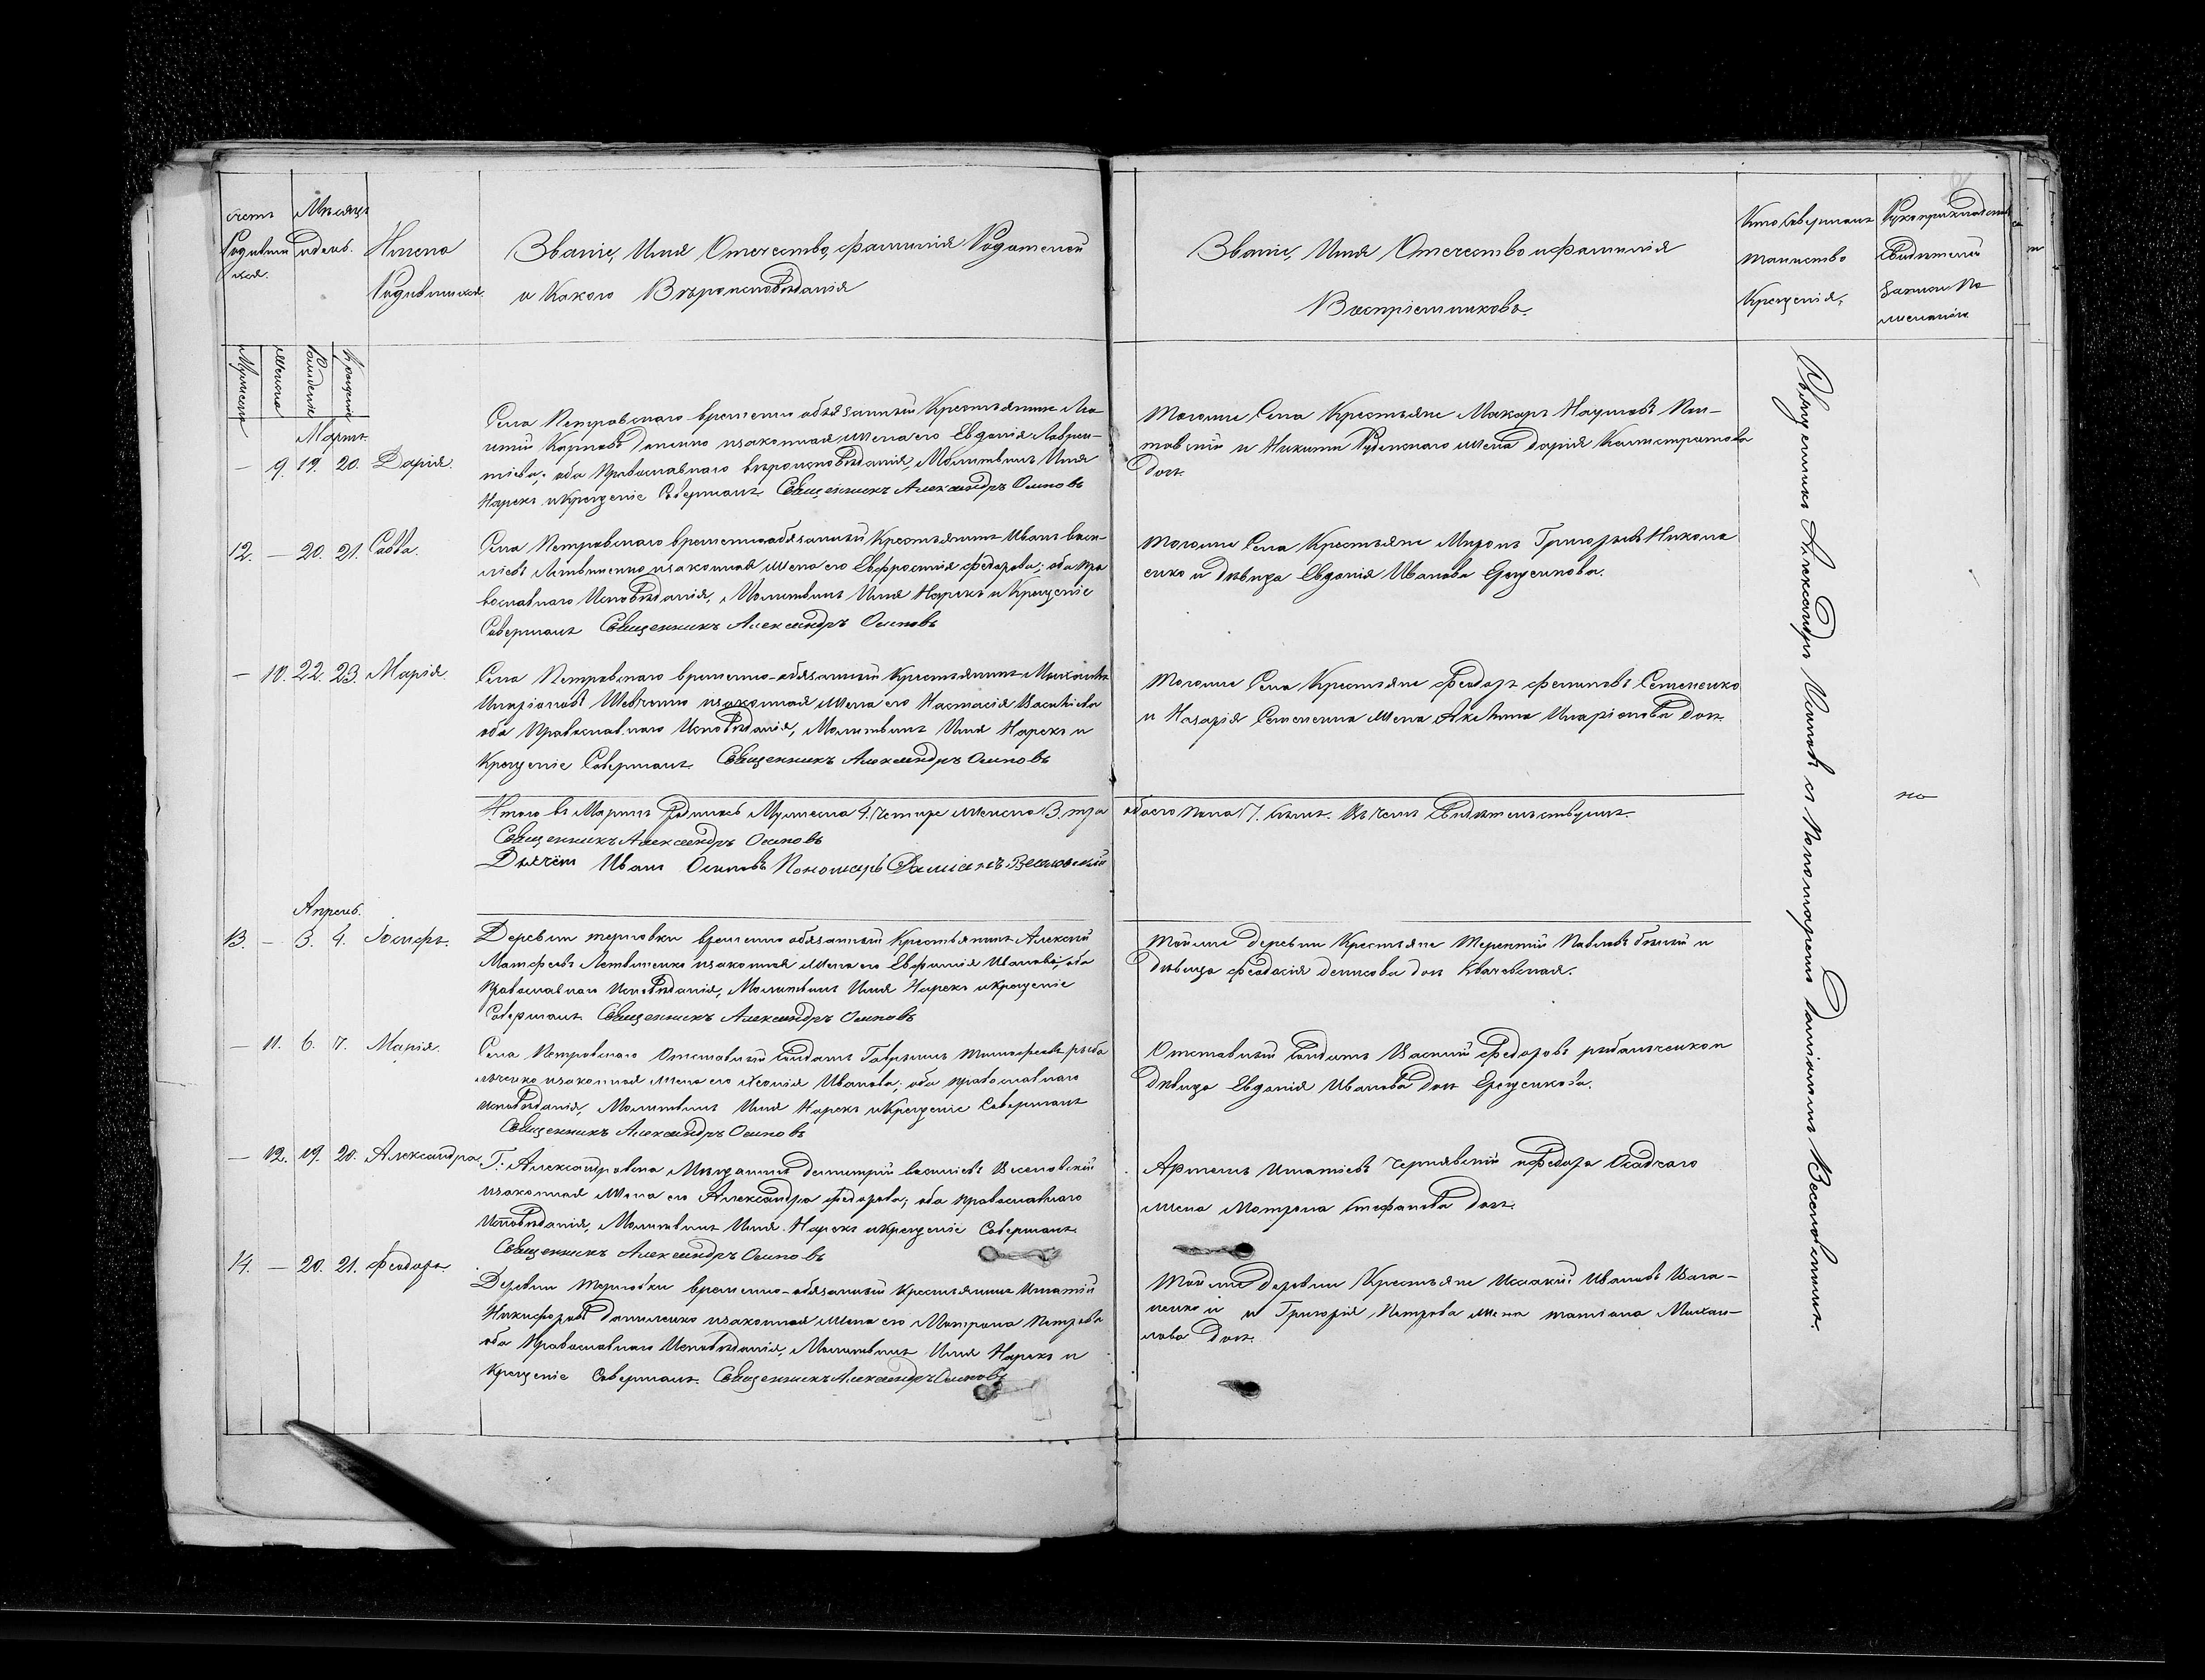 Счетъ Родившихся.
Мѣсяцъ и день.
Имена Родившихся.
Званіе, Имя Отечество, фамилія Родителей
и Какого Вѣроисповѣданія
Званіе, Имя Отечество и фамилія
Воспріемниковъ.
Кто совершалъ
таинство
Крещенія,
Рукоприкладство
Свидѣтелей
записи по
желанію.
Мужеска
Женска
Рожденія
Крещенія
Мартъ.
— 9. 19. 20. Дарія.
Села Петровскаго временно обязанный Крестьянинъ
Карповъ и законная жена его Евдокія Лаврен-
тіева; оба Православнаго вѣроисповѣданія, Молитвилъ Имя
Нарекъ и Крещеніе Совершалъ Священникъ Александръ Осиповъ
Тогоже Села Крестьяне Макаръ Наумовъ Пол-
тавскій и Никиты жена Дарія Калистратова
дочь.
12. — 20. 21. Савва.
Села Петровскаго временно обязанный Крестьянинъ Иванъ Васи-
ліевъ Литвиненко и законная жена его Евфросинія Федорова; оба Пра
вославнаго Исповѣданія, Молитвилъ Имя Нарекъ и Крещеніе
Совершалъ Священникъ Александръ Осиповъ
Тогоже Села Крестьяне Миронъ Григорьевъ Никола
енко и дѣвица Евдокія Иванова Ерещенкова.
— 10. 22. 23. Марія.
Села Петровскаго временно-обязанный Крестьянинъ Михаилъ
Иларіоновъ Шевченко и законная жена его Настасія Василіева
оба Православнаго Исповѣданія, Молитвилъ Имя Нарекъ и
Крещеніе Совершалъ Священникъ Александръ Осиповъ
Тогоже Села Крестьяне Феодоръ Филиповъ Семененко
и Назарія Семененка жена Акилина Иларіонова дочь.
Итого въ Мартѣ Родилось Мужеска 4. четыре женска 3. три обоего пола 7. семь. Въ чемъ Свидѣтельствуемъ.
Священникъ Александръ Осиповъ
Дьячёкъ Иванъ Осиповъ Пономарь Даміанъ Веселовскій
но
Апрель.
13. — 3. 4. Іосифъ.
Деревни Терновки временно обязанный Крестьянинъ Алексѣй
Матфеевъ Литвиненко и законная жена его Евфимія Иванова; оба
Православнаго Исповѣданія, Молитвилъ Имя Нарекъ и Крещеніе
Совершалъ Священникъ Александръ Осиповъ
Тойже деревни Крестьяне Терентій Павловъ Бѣлый и
дѣвица Феодосія Денисова дочь Квачевская.
— 11. 6. 7. Марія.
Села Петровскаго Отставный Солдатъ Гавріилъ Тимофеевъ Рыба
льченко и законная жена его Ксенія Иванова; оба православнаго
исповѣданія, Молитвилъ Имя Нарекъ и Крещеніе Совершалъ
Священникъ Александръ Осиповъ
Отставный Солдатъ Василій Федоровъ Рыбальченко и
дѣвица Евдокія Иванова дочь Ерещенкова.
— 12. 19. 20. Александра.
Г. Александровска Мѣщанинъ Димитрій Василіевъ
и законная жена его Александра Федорова; оба Православнаго
Исповѣданія, Молитвилъ Имя Нарекъ и Крещеніе Совершалъ
Священникъ Александръ Осиповъ
Артемъ Игнатіевъ Чернявскій и Федора Осадчаго
жена Матрона Стефанова дочь.
14. — 20. 21. Феодоръ.
Деревни Терновки временно-обязанный Крестьянинъ Игнатій
Никифоровъ Даниленко и законная жена его Матрона Петрова
оба Православнаго Исповѣданія, Молитвилъ Имя Нарекъ и
Крещеніе Совершалъ Священникъ Александръ Осиповъ
Тойже деревни Крестьяне Исаакій Ивановъ
и Григорія Петрова жена Татіана Михаи-
лова дочь.
Священникъ Александръ Осиповъ съ Пономаремъ Даміаномъ Веселовскимъ.